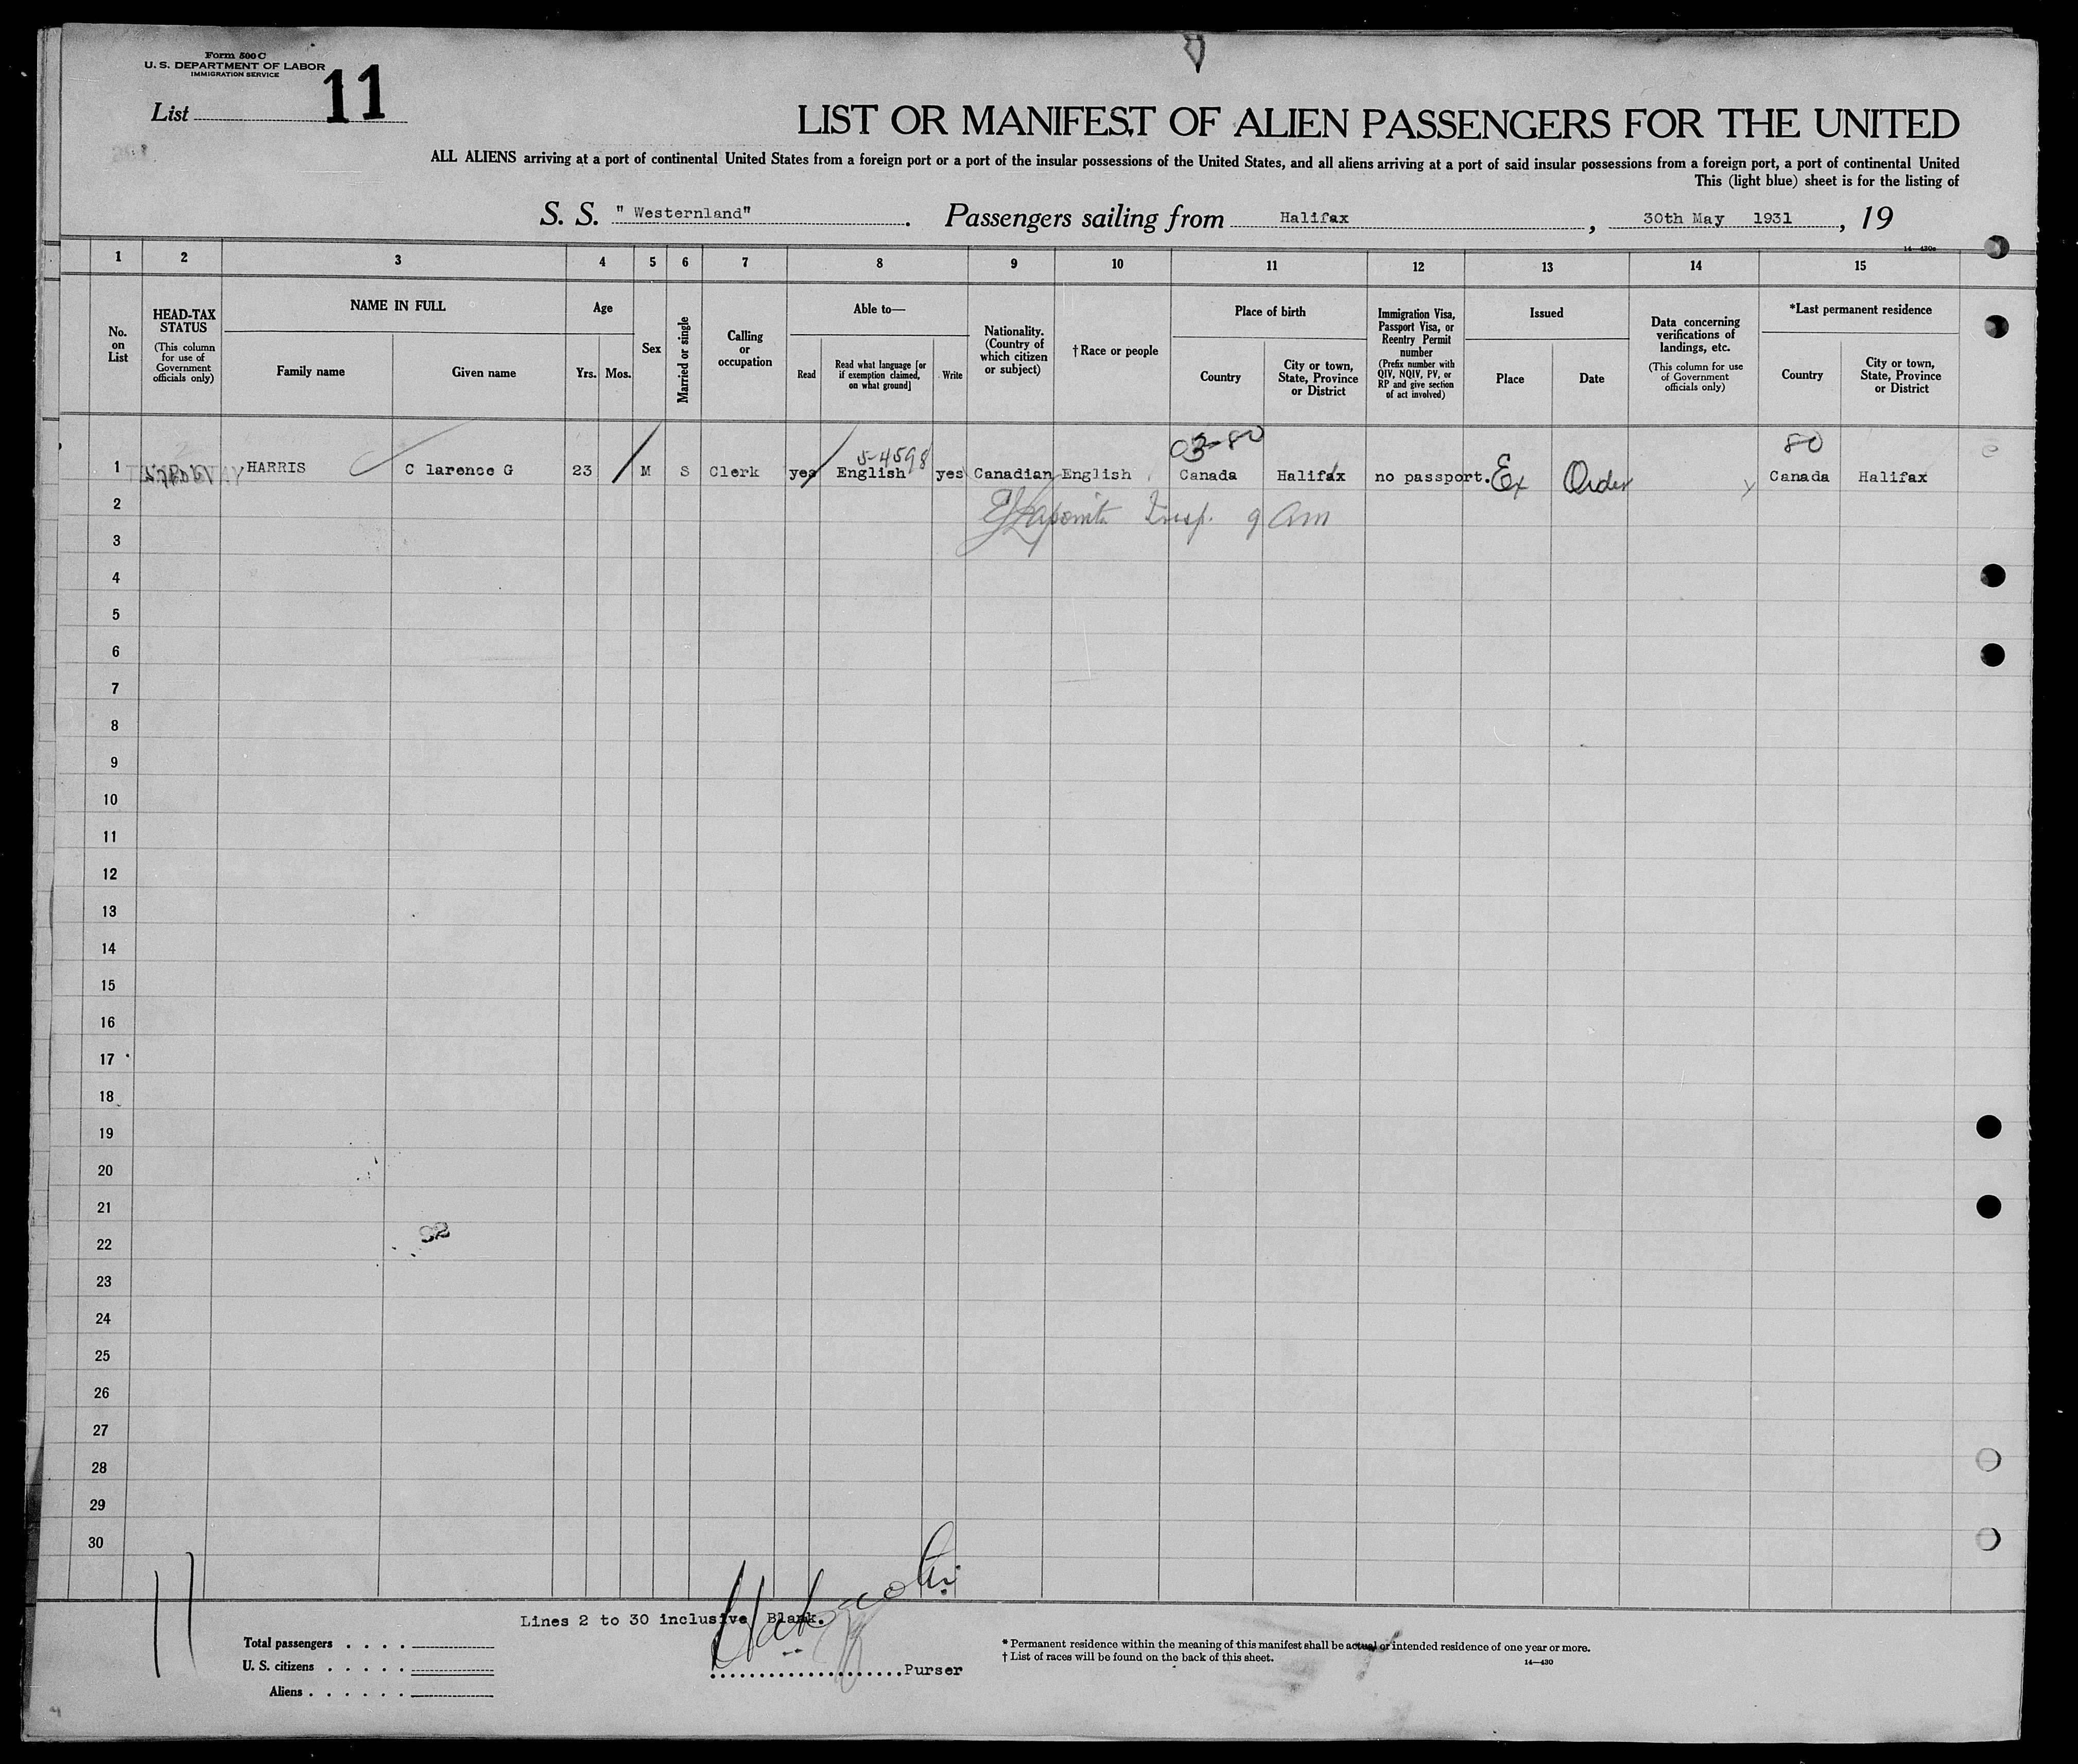 Form 500 C
U. S. DEPARTMENT OF LABOR
IMMIGRATION SERVICE
List 11
LIST OR MANIFEST OF ALIEN PASSENGERS FOR THE UNITED
ALL ALIENS arriving at a port of continental United States from a foreign port or a port of the insular possessions of the United States, and all aliens arriving at a port of said insular possessions from a foreign port, a port of continental United
This (light blue) sheet is for the listing of
S. S. " Westernland" . Passengers sailing from Halifax , 30th May 1931 , 19
14—430c
1 2 3 4 5 6 7 8 9 10 11 12 13 14 15
No. on List
HEAD-TAX STATUS (This column for use of Government officials only)
NAME IN FULL
Family name
Given name
Age
Yrs. Mos.
Sex
Married or single
Calling or occupation
Able to—
Read
Read what language [or if exemption claimed, on what ground]
Write
Nationality. (Country of which citizen or subject)
† Race or people
Place of birth
Country
City or town, State, Province or District
Immigration Visa, Passport Visa, or Reentry Permit number (Prefix number with QIV, NQIV, PV, or RP and give section of act involved)
Issued
Place
Date
Data concerning verifications of landings, etc. (This column for use of Government officials only)
*Last permanent residence
Country
City or town, State, Province or District
5-4598 03-80 80
1 HARRIS C larence G 23 M S Clerk yes English yes Canadian English Canada Halifax no passport. Ex Order Canada Halifax
2 Insp. 9 am
3
4
5
6
7
8
9
10
11
12
13
14
15
16
17
18
19
20
21
22
23
24
25
26
27
28
29
30
11
Lines 2 to 30 inclusive Blank.
Total passengers . . . .
U. S. citizens . . . . .
Aliens . . . . . .
....................Purser
* Permanent residence within the meaning of this manifest shall be actual or intended residence of one year or more.
† List of races will be found on the back of this sheet.
14—430